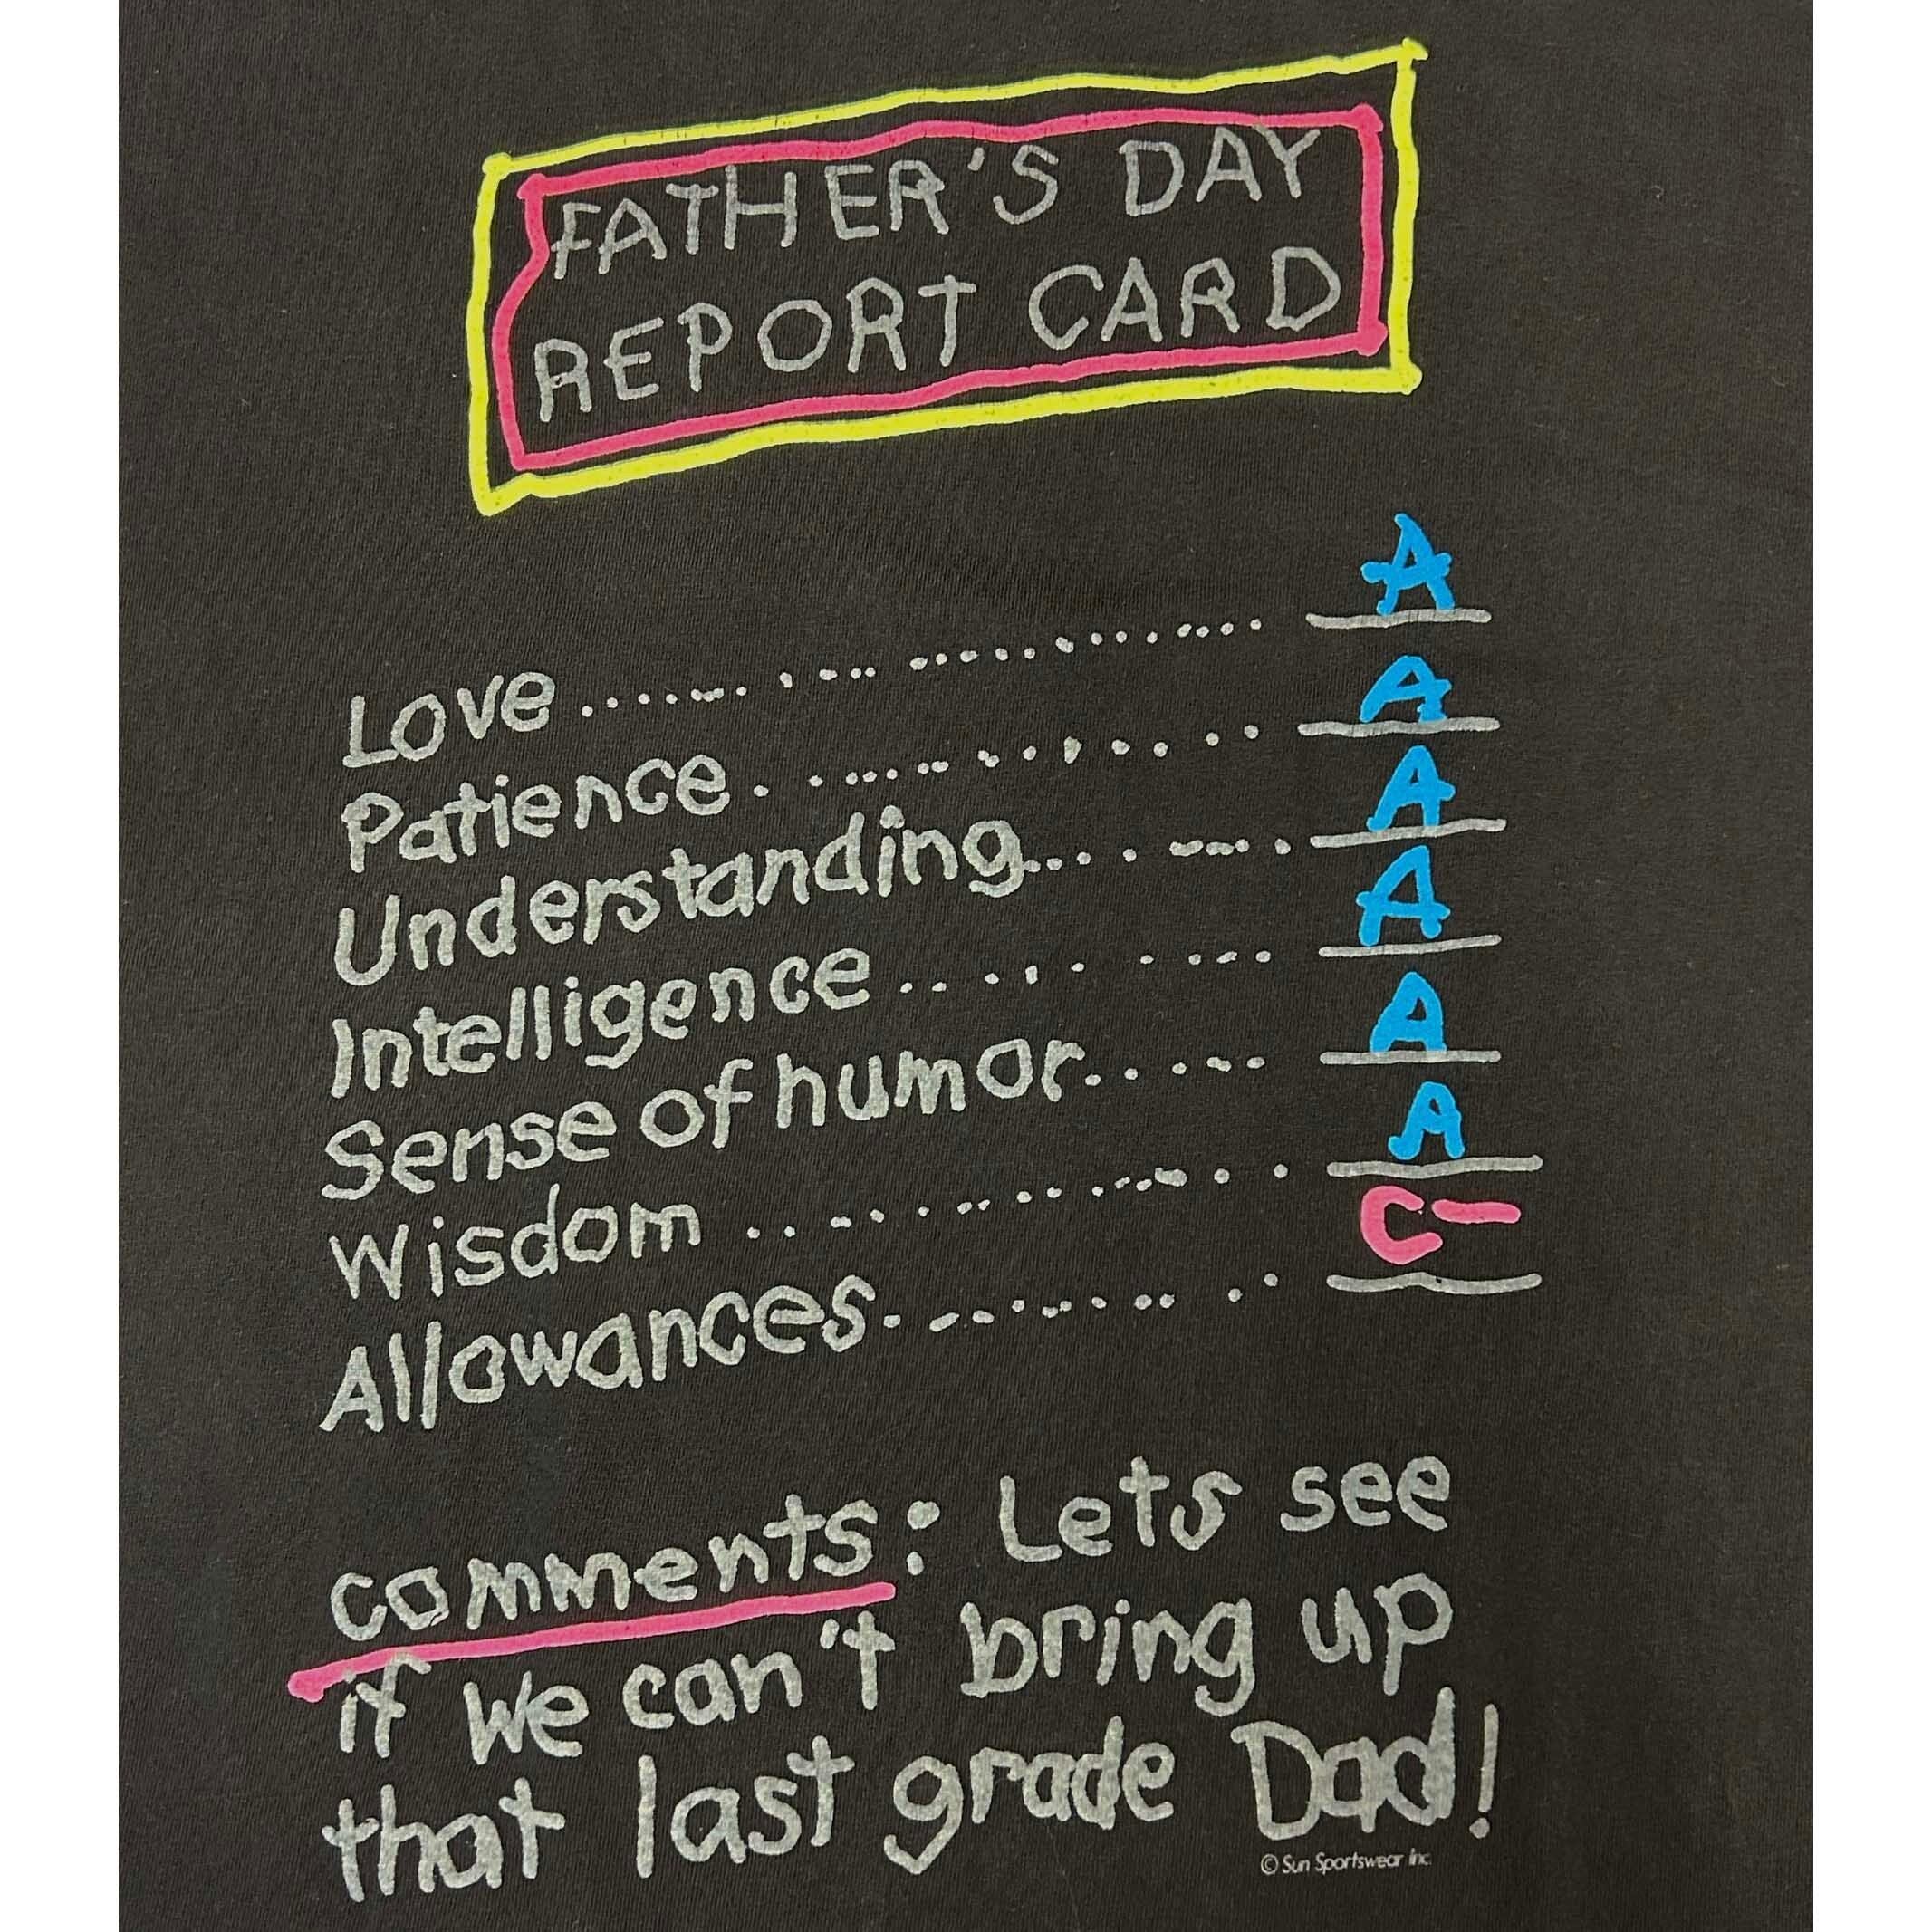 FATHER'S DAY
REPORT CARD
Love.................................. A
Patience..................... A
Understanding........... A
Intelligence............. A
Sense of humor........ A
Wisdom........................ A
Allowances................ C-
comments: Lets see
if we can't bring up
that last grade Dad!
© Sun Sportswear Inc.